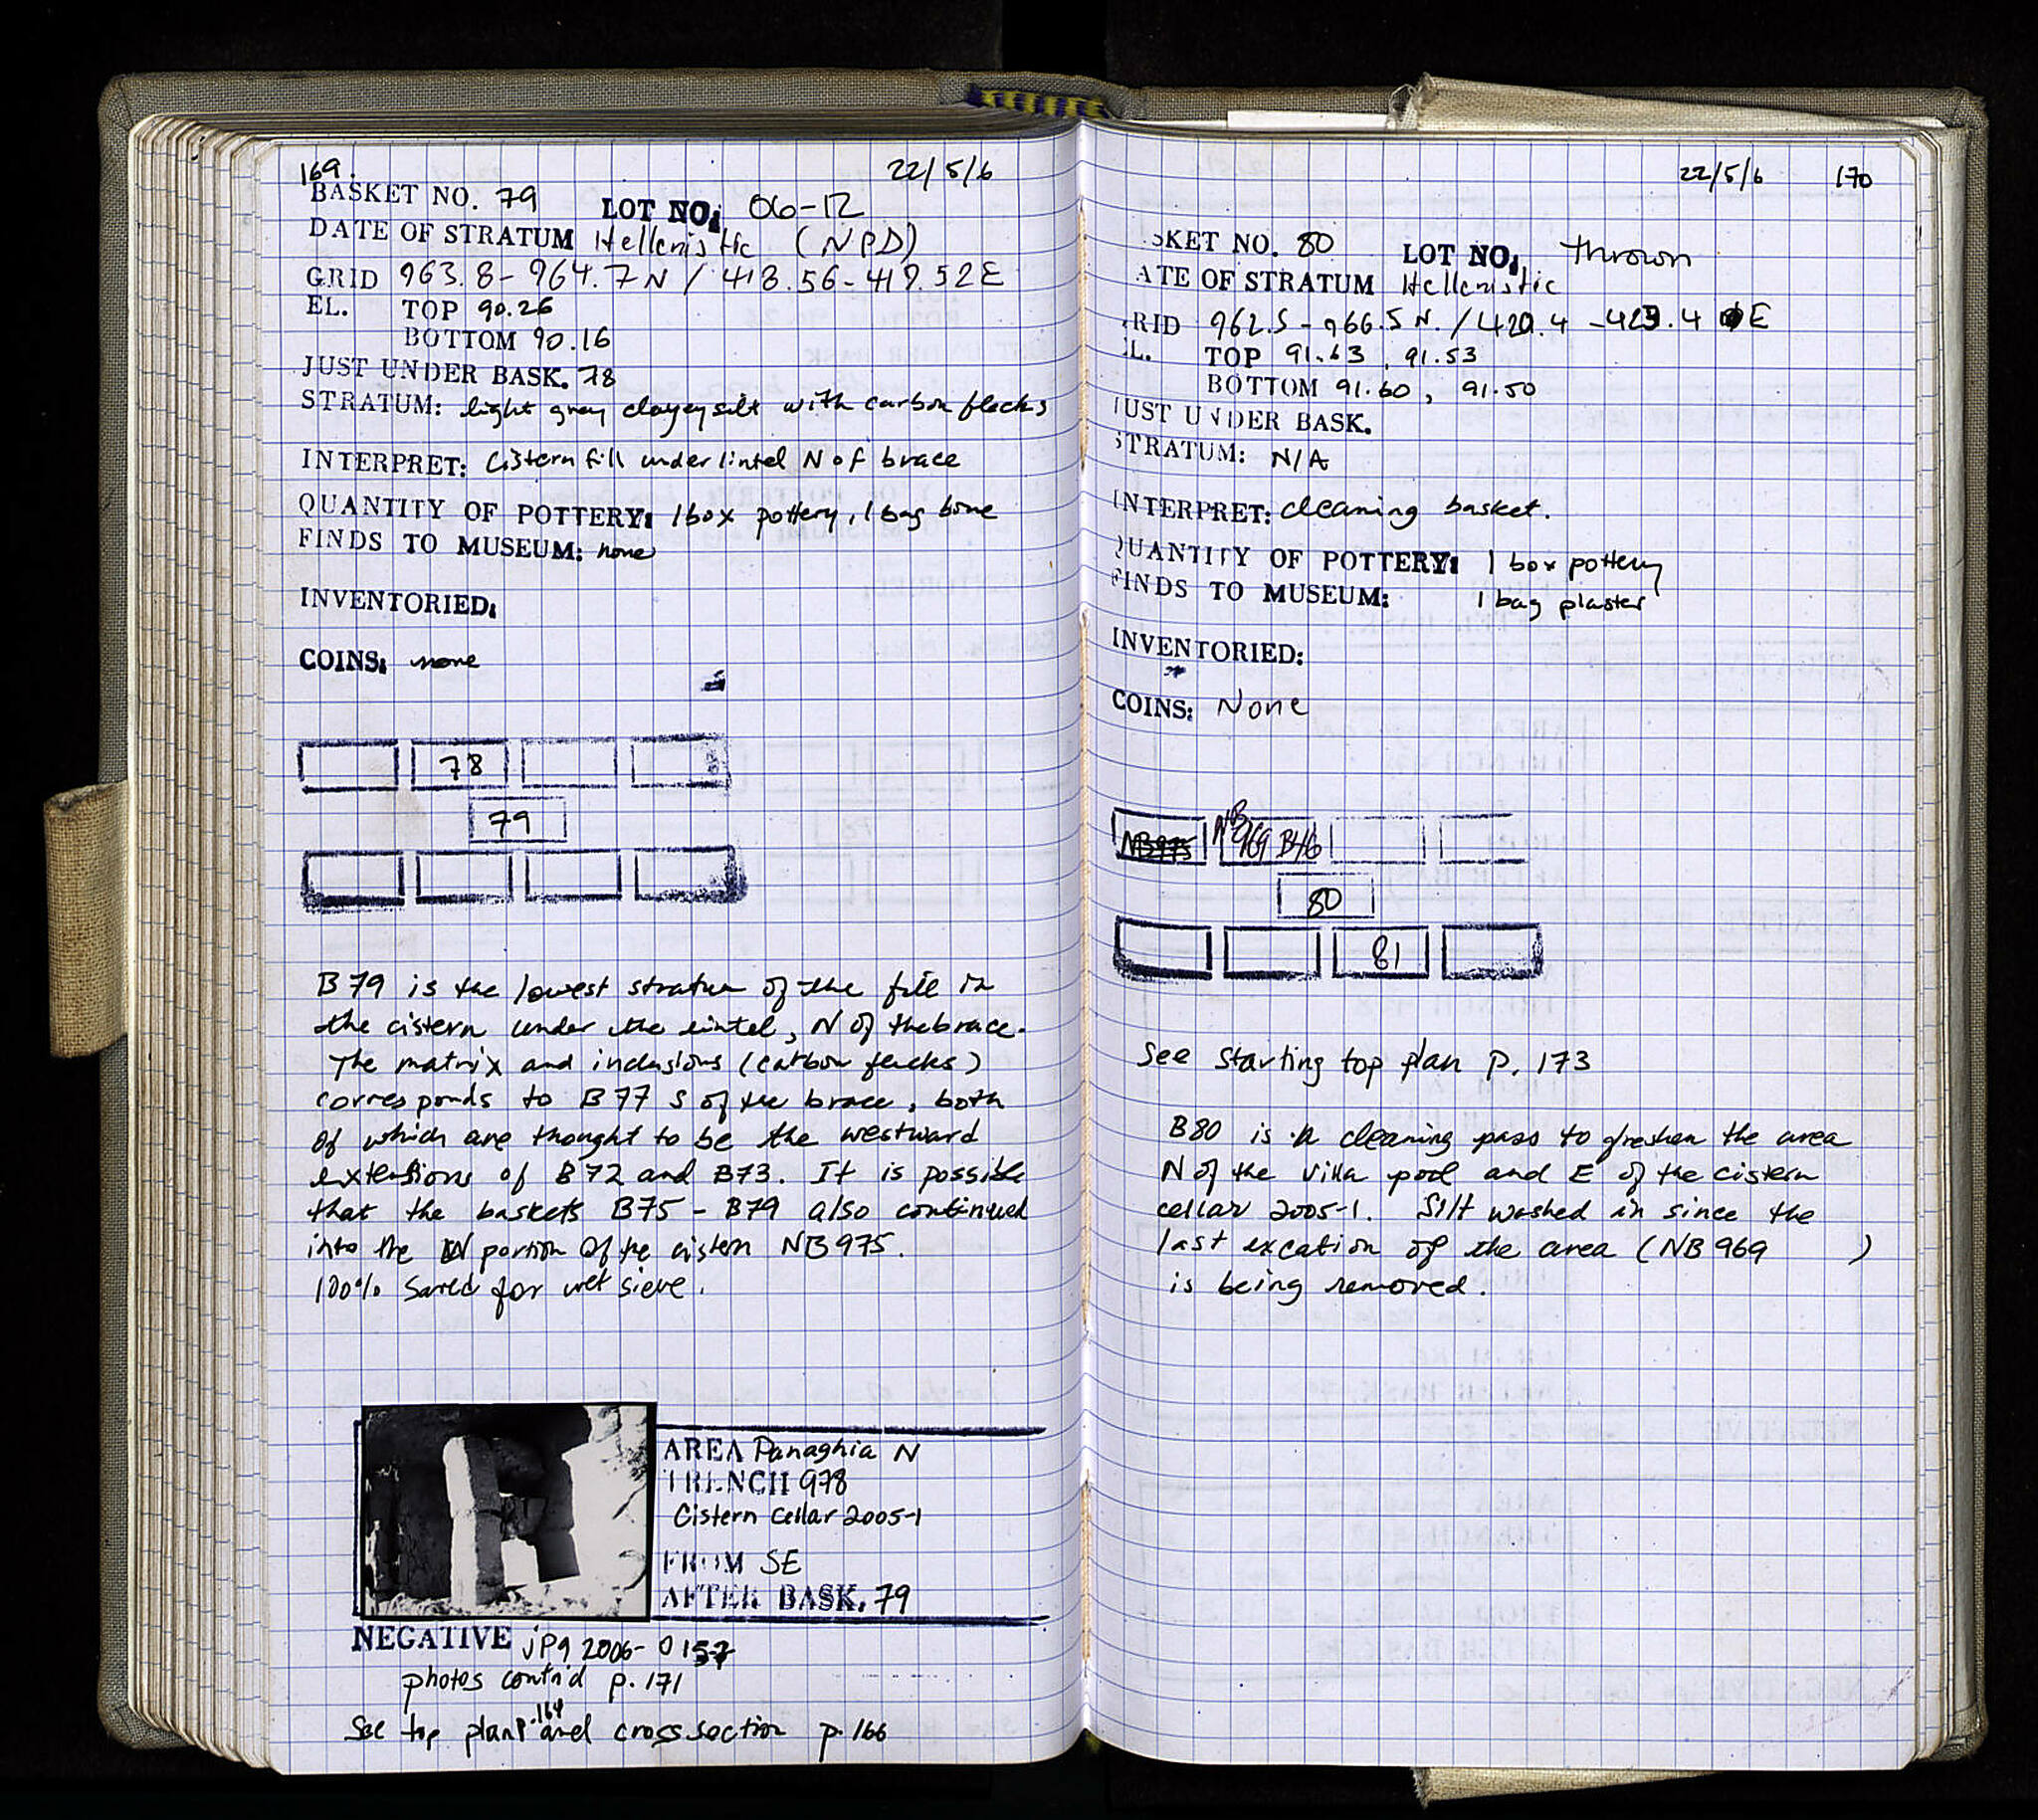 169.
22/5/6
BASKET NO. 79 LOT NO: 06-12
DATE OF STRATUM Hellenistic (NPD)
GRID 963.8-964.7N / 418.56-419.52E
EL. TOP 90.26
BOTTOM 90.16
JUST UNDER BASK. 78
STRATUM: light gray clayey silt with carbon flecks
INTERPRET: Cistern fill under lintel N of brace
QUANTITY OF POTTERY: 1 box pottery, 1 bag bone
FINDS TO MUSEUM: none
INVENTORIED:
COINS: none
78
79
B79 is the lowest stratum of the fill in
the cistern under the lintel, N of the brace.
The matrix and inclusions (carbon flecks)
corresponds to B77 S of the brace, both
of which are thought to be the westward
extensions of B72 and B73. It is possible
that the baskets B75 - B79 also continued
into the W portion of the cistern NB975.
100% saved for wet sieve.
AREA Panaghia N
TRENCH 978
Cistern Cellar 2005-1
FROM SE
AFTER BASK. 79
NEGATIVE jpg 2006-0157
photos contn'd p. 171
See top plan p. 164 and cross section p. 166
22/5/6 170
SKET NO. 80 LOT NO: thrown
ATE OF STRATUM Hellenistic
RID 962.5-966.5 N. / 420.4 -423.4 E
L. TOP 91.63, 91.53
BOTTOM 91.60, 91.50
JUST UNDER BASK.
STRATUM: N/A
INTERPRET: cleaning basket.
QUANTITY OF POTTERY: 1 box pottery
FINDS TO MUSEUM: 1 bag plaster
INVENTORIED:
COINS: None
NB975 NB 969 B46
80
81
See starting top plan p. 173
B80 is a cleaning pass to freshen the area
N of the villa pool and E of the cistern
cellar 2005-1. Silt washed in since the
last excation of the area (NB 969 )
is being removed.